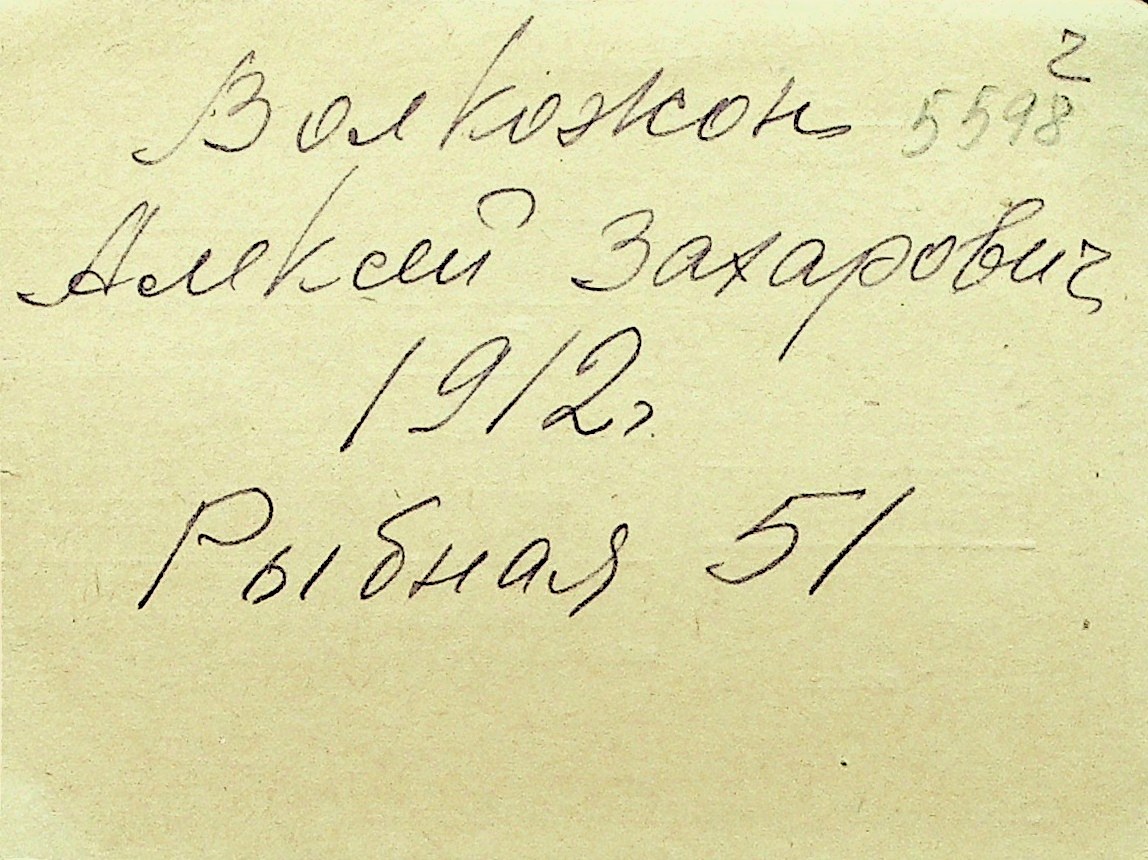 Волкожон 5598
Алексей Захарович
1912г
Рыбная 51